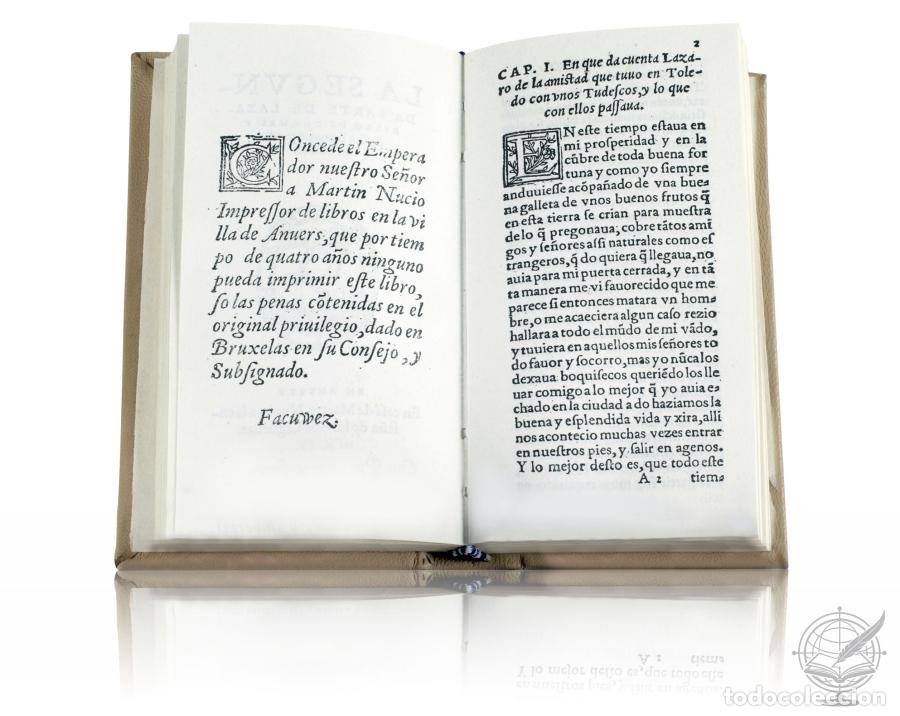 Concede el Empera
dor nuestro Señor
a Martin Nucio
Impressor de libros en la vi
lla de Anuers, que por tiem
po de quatro años ninguno
pueda imprimir este libro,
so las penas cõtenidas en el
original priuilegio, dado en
Bruxelas en su Consejo, y
Subsignado.
Facuwez.
2
CAP. I. En que da cuenta Laza-
ro de la amistad que tuuo en Tole-
do con vnos Tudescos, y lo que
con ellos passaua.
EN este tiempo estaua en
mi prosperidad y en la
cũbre de toda buena for
tuna y como yo siempre
anduuiesse acõpañado de vna bue-
na galleta de vnos buenos frutos q̃
en esta tierra se crian para muestra
de lo q̃ pregonaua; cobre tãtos ami
gos y señores assi naturales como es
trangeros, q̃ do quiera q̃ llegaua, no
auia para mi puerta cerrada, y en tã
ta manera me vi fauorecido que me
parece si entonces matara vn hom-
bre, o me acaeciera algun caso rezio
hallara a todo el mũdo de mi vãdo,
y tuuiera en aquellos mis señores to
do fauor y socorro, mas yo nũca los
dexaua boquisecos queriẽdo los lle
uar comigo a lo mejor q̃ yo auia e-
chado en la ciudad a do haziamos la
buena y esplendida vida y xira, alli
nos acontecio muchas vezes entrar
en nuestros pies, y salir en agenos.
Y lo mejor desto es, que todo este
A 2 tiem-
todocoleccion